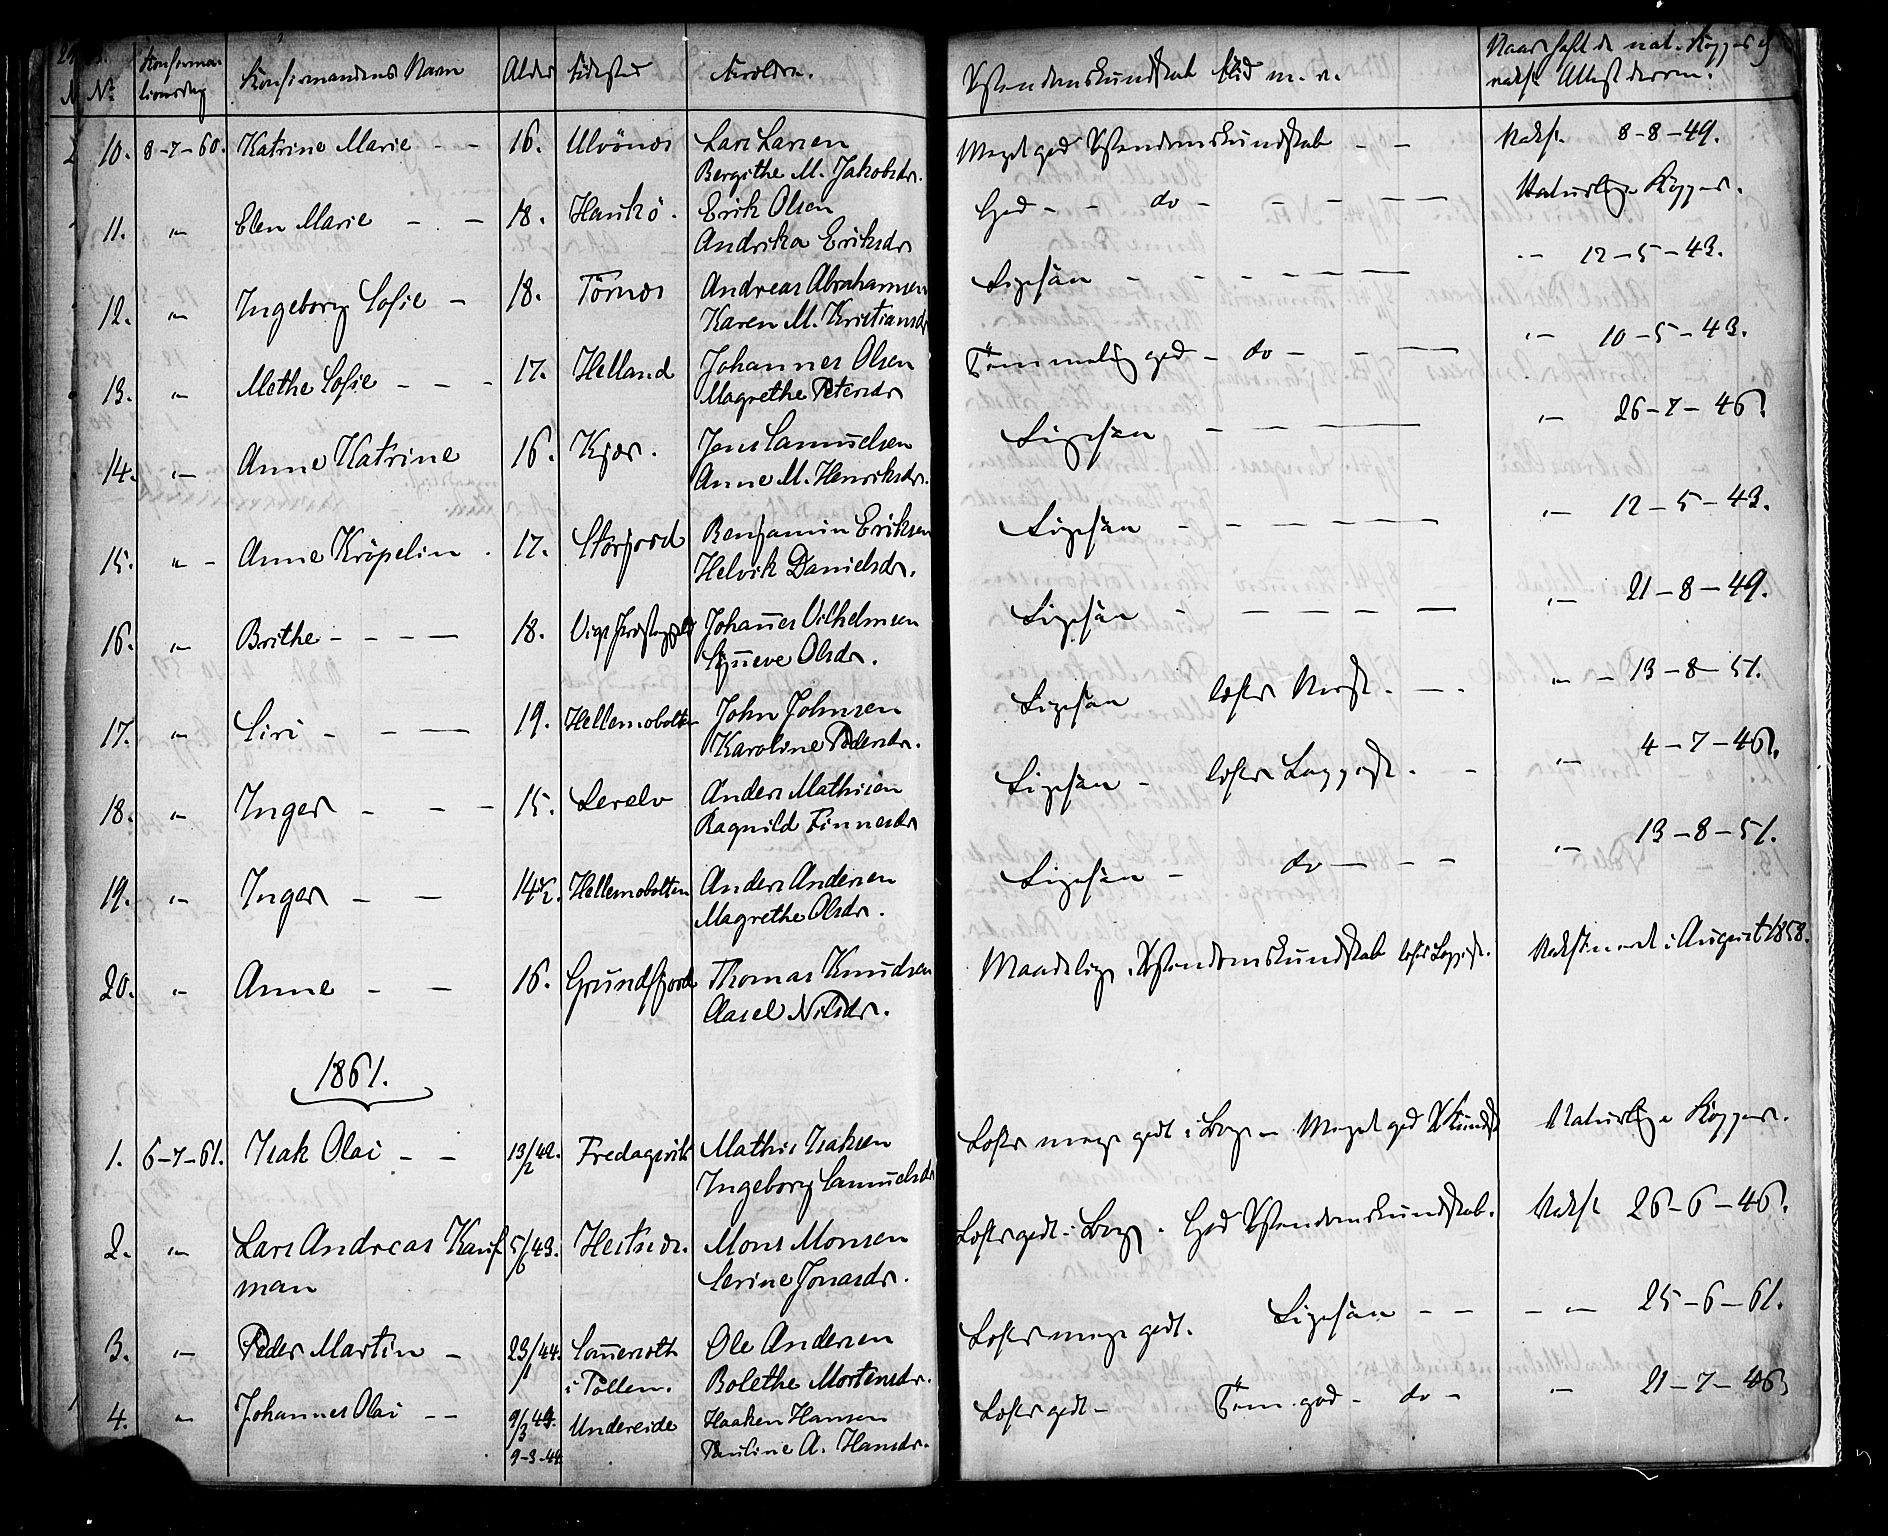 No Konfirmationsdag Konfirmandens Navn Alder Födested Forældre. Kristendomskundskab flid m. v. Naar havt de nat. Kopper ell. vakc. Attest derom.
10. 8-7-60. Katrine Marie - - 16. Ulvönæs Lars Larsen Meget god Kristendomskundskab - - Vakc. 8-8-49.
Bergithe M. Jakobsdr.
11. " Elen Marie - - 18. Haukö. Erik Olsen God - - do - - - - Naturlige Kopper.
Andrika Eriksdr
12. " Ingeborg Sofie - 18. Törnæs Andreas Abrahamsen Ligesaa - - - - - - " 12-5-43.
Karen M. Kristiansdr
13. " Methe Sofie - - - 17. Helland Johannes Olsen Temmelig god - do - - - " 10-5-43.
Magrethe Petersdr
14. " Anne Katrine 16. Kjær. Jens Samuelsen Ligesaa - - - - " 26-7-46.
Anne M. Henriksdr.
15. " - Anne Kröpelin. 17. Storjord Benjamin Eriksen Ligesaa - - - - - " 12-5-43.
Helvik Danielsdr.
16. " Brithe - - - - 18. Johannes Vilhelmsen Ligesaa - - - - - " 21-8-49.
Synneve Olsdr.
17. " Siri - - - 19. Hellemobotten John Johnsen Ligesaa læser Norsk. - . " - 13-8-51.
Karoline Pedersdr.
18. " Inger - - - 15. Lerelv Anders Mathisen Ligesaa - læser Lappisk. - " 4-7-46.
Ragnild Finnesdr
19. " Inger - - 14½. Hellemobotten Anders Andersen Ligesaa - do - - - " 13-8-51.
Magrethe Olsdr.
20. " Anne - - 16. Grundfjord Thomas Knudsen Maadelige Kristendomskundskab læser Lappisk. Vakcineret i August 1858.
Aasel Nilsdr.
1861.
1. 6-7-61. Isak Olai - - 13/2 42. Fredagsvik Mathis Isaksen Læser meget godt i Bog - Meget god Kkundsk Naturlige Kopper.
Ingeborg Samuelsdr
2. " Lars Andreas Kauf 5/6 43. Mons Monsen Læser godt i Bog. God Kristendomskundskab. Vakc. 26-6-46.
man Serine Jonasdr.
3. " Peder Martin - 23/1 44. Ole Andersen Læser meget godt. Ligesaa - - - " 25-6-61.
i Pollen. Bolethe Mortensdr.
4. " Johannes Olai - - 9/3 44. Undereide Haaken Hansen Læser godt - Tem. god - do - " 21-7-46
9-3-44 Pauline A. Hansdr.